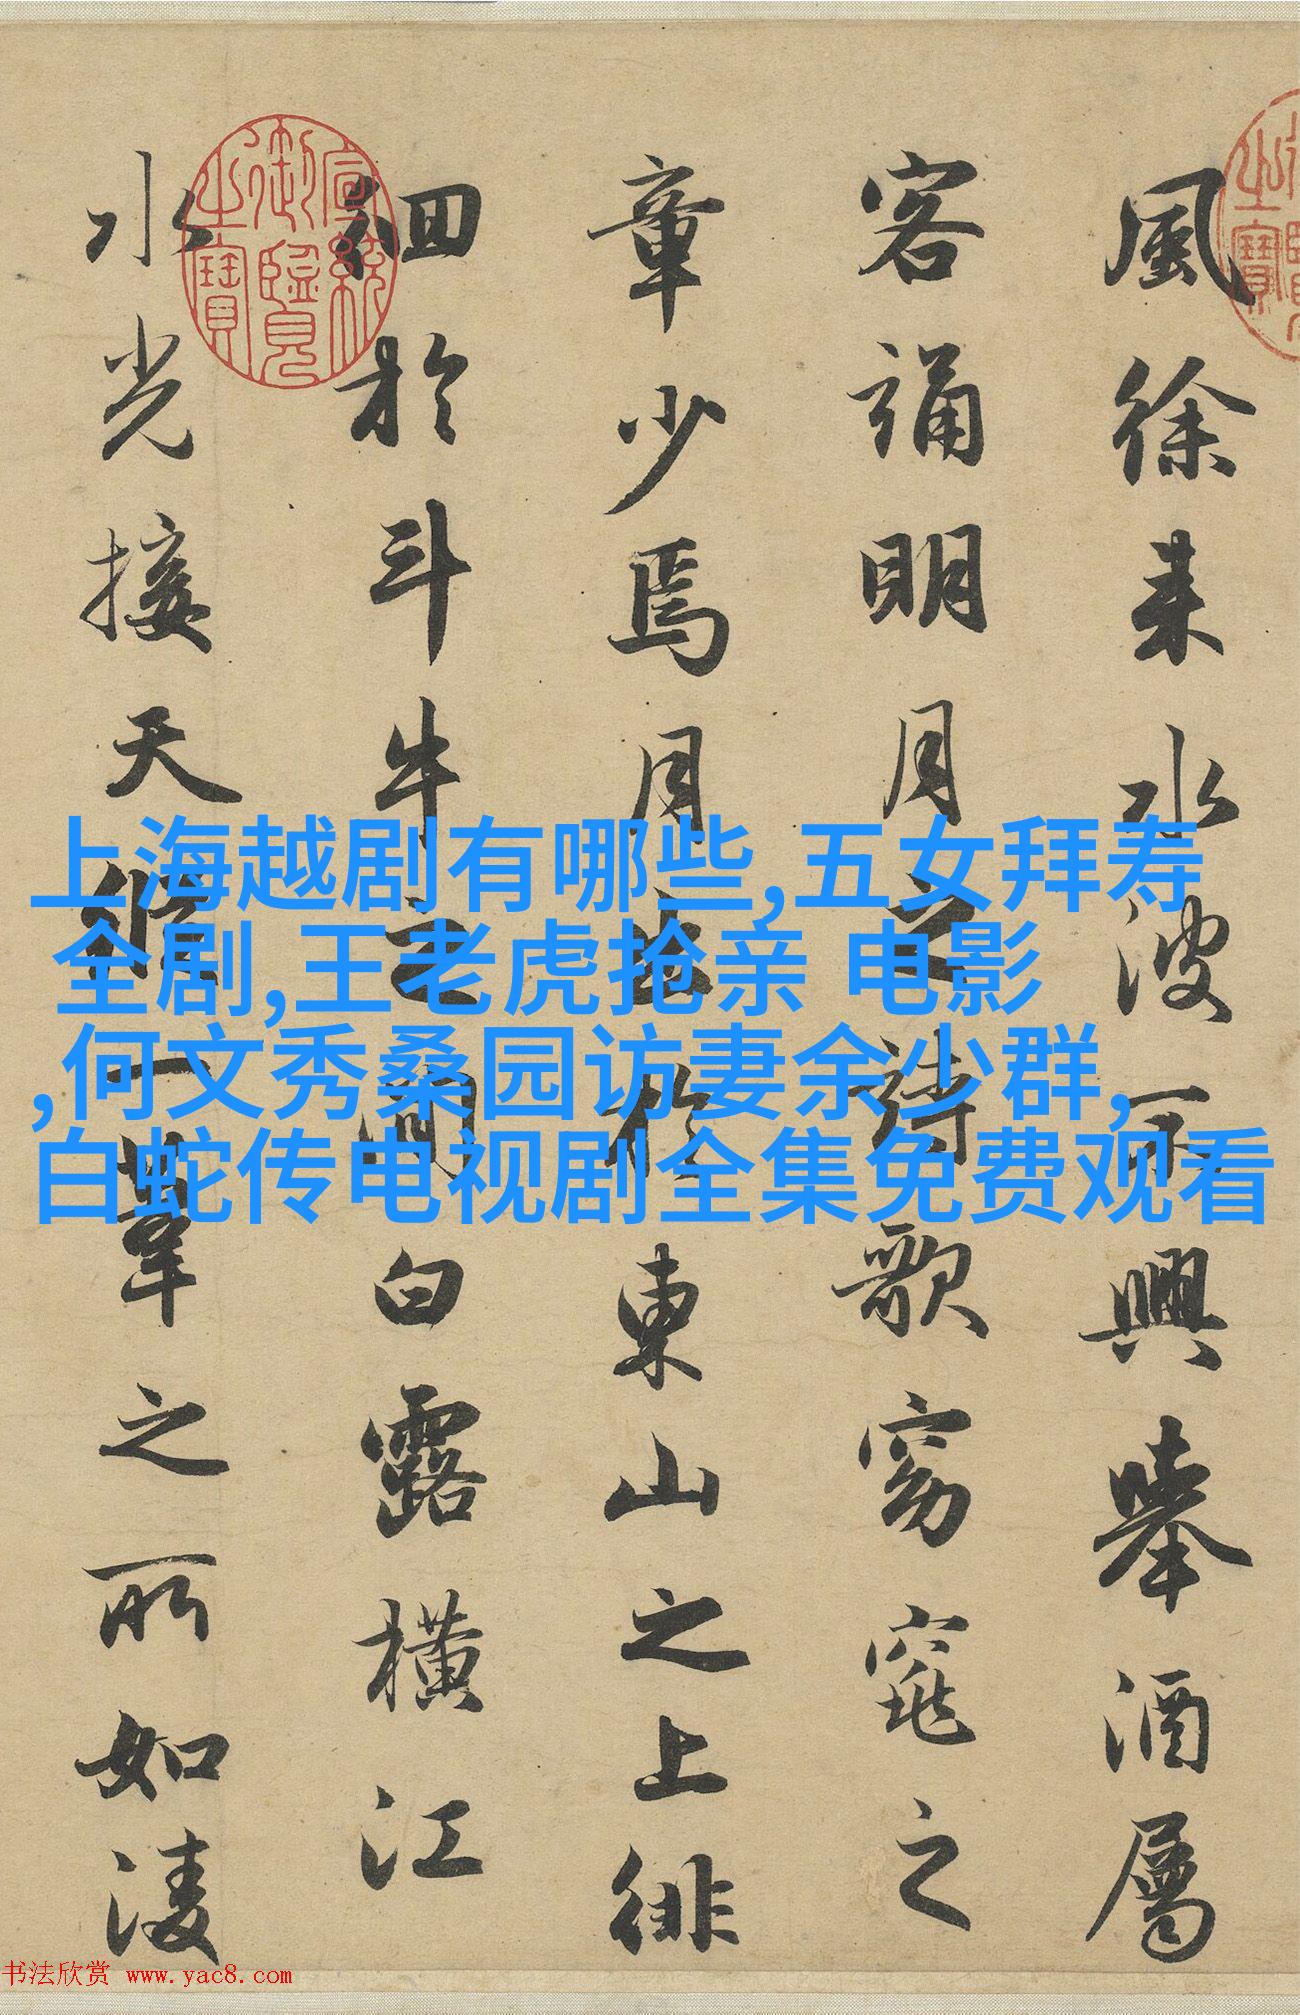 風徐来水波不興舉酒屬
客誦明月之詩歌窈窕之
章少焉月出於東山之上徘
徊於斗牛之間白露橫江
水光接天縱一葦之所如淩
宣統御覽之寶
上海越剧有哪些,五女拜寿
全剧,王老虎抢亲 电影
,何文秀桑园访妻余少群,
白蛇传电视剧全集免费观看
书法欣赏 www.yac8.com